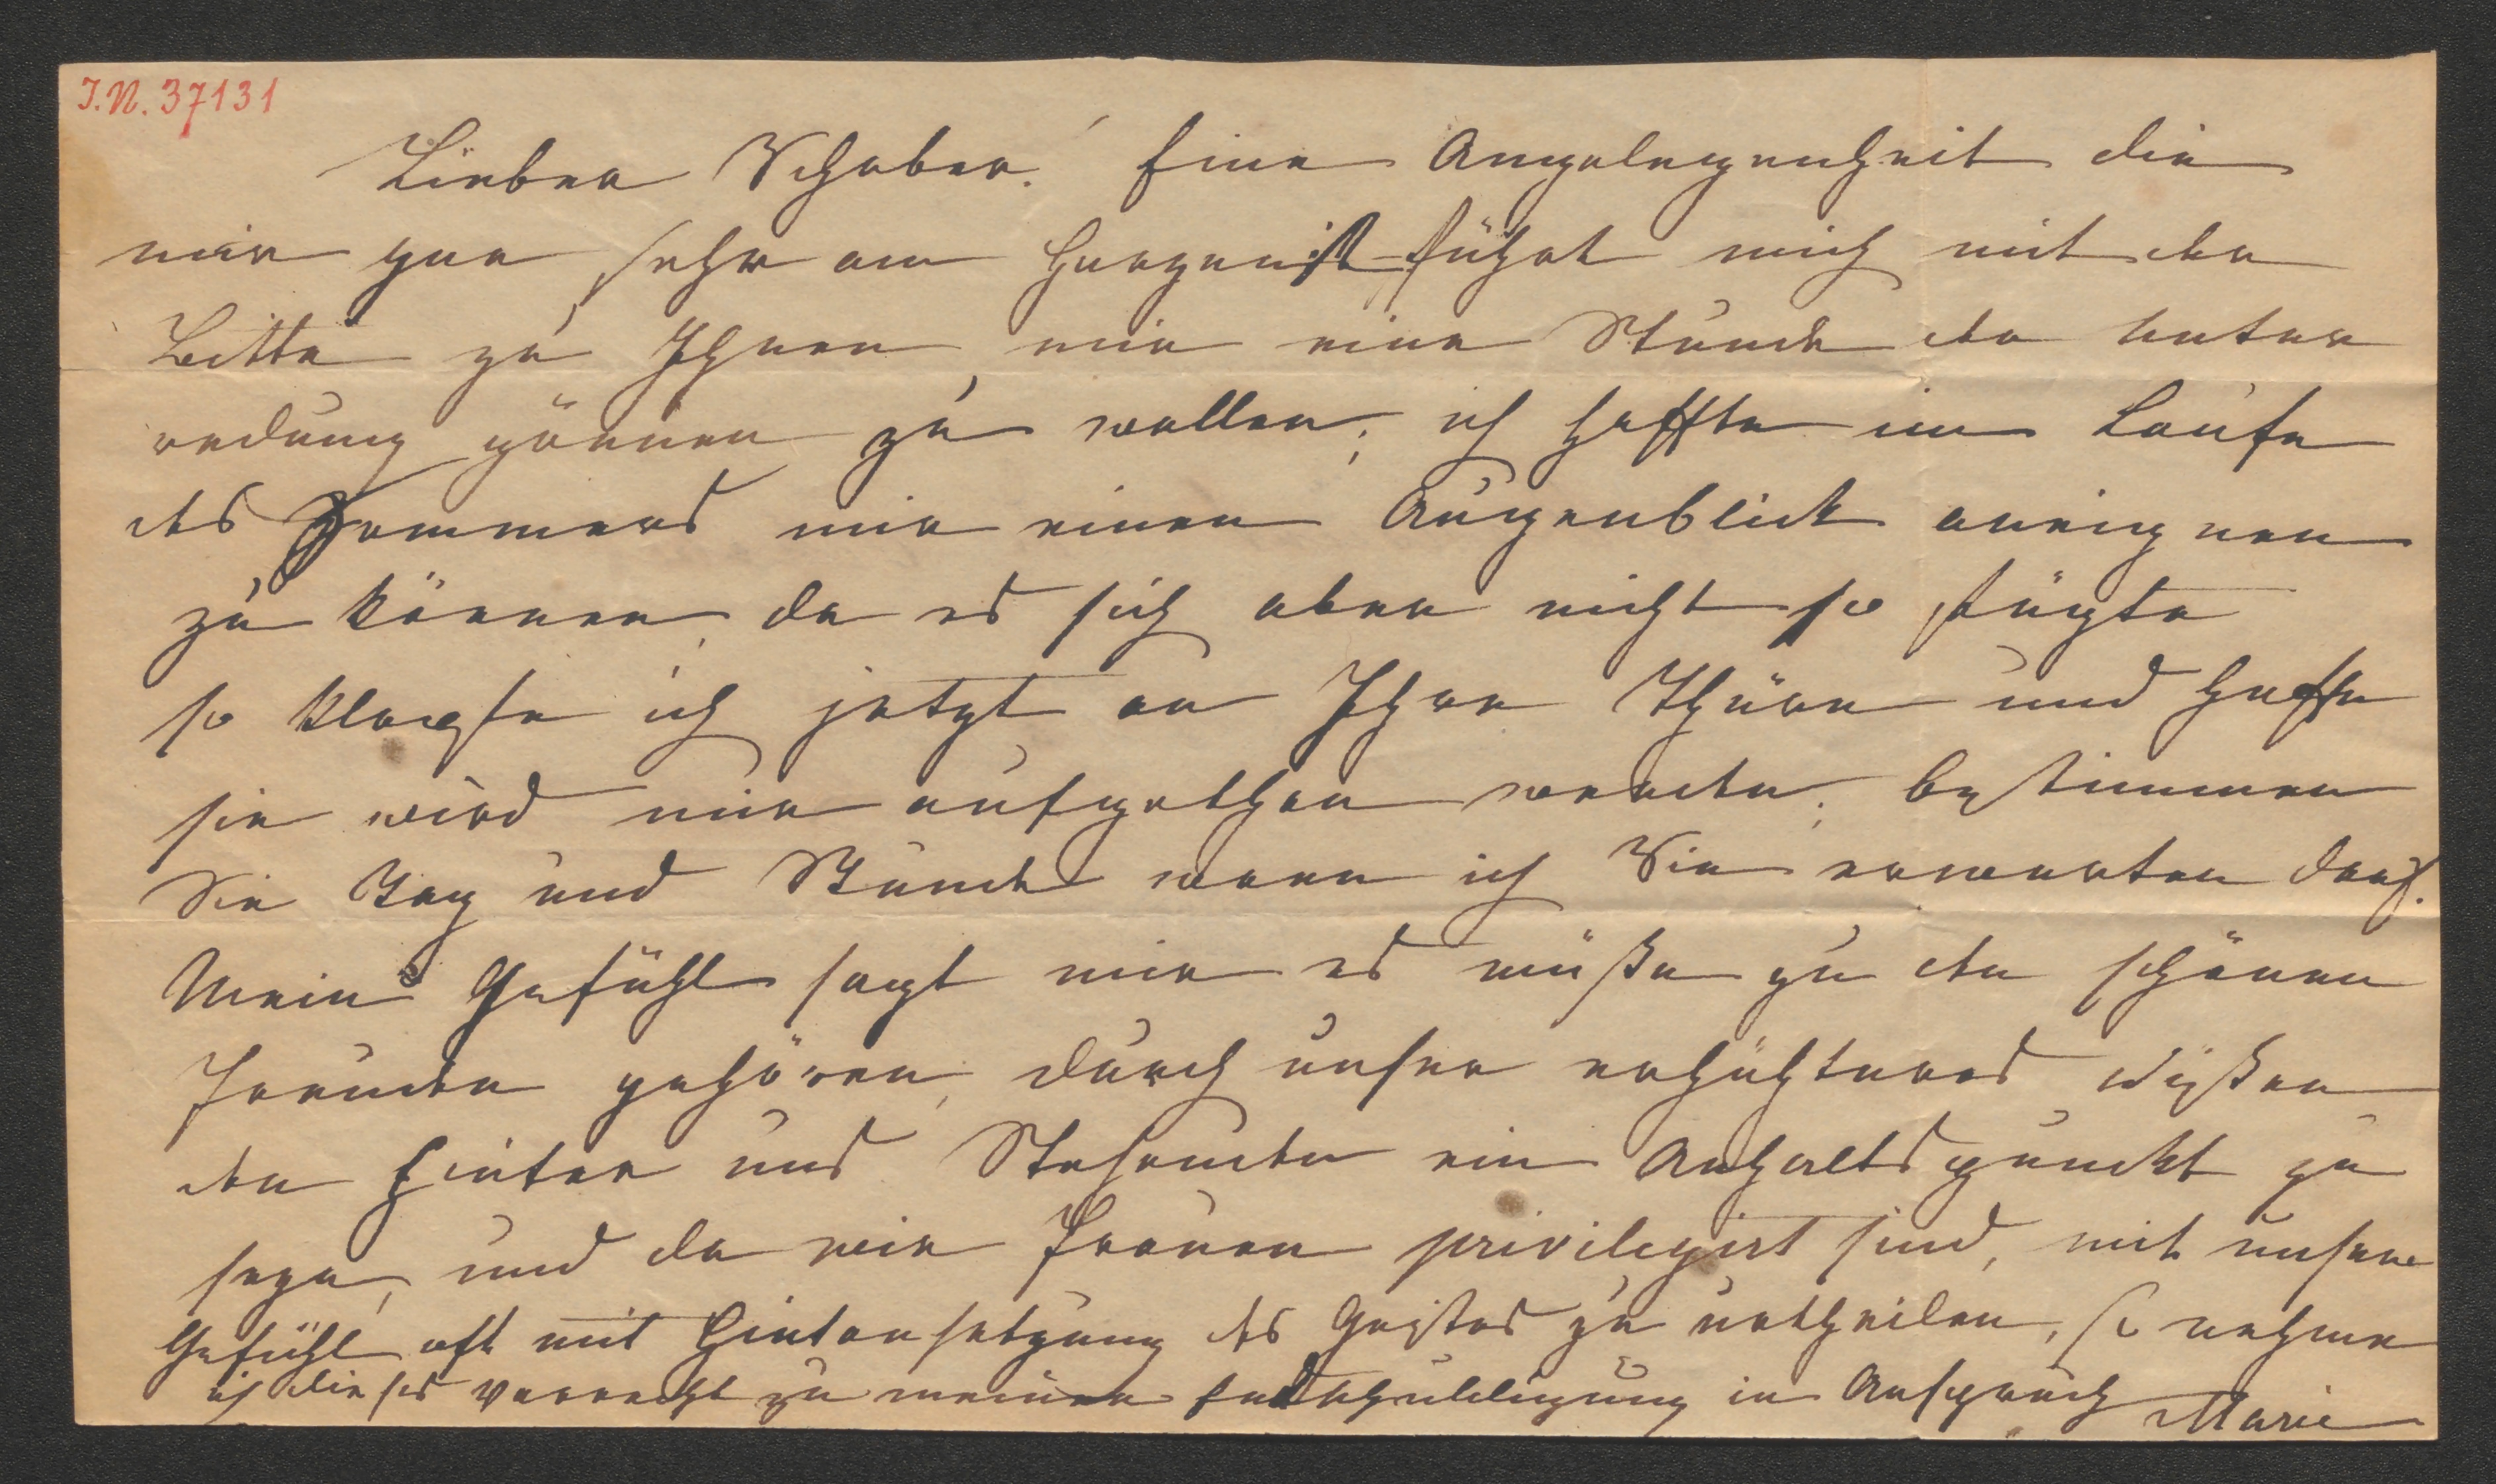 I.N. 37131
Lieber Schober! Eine Angelegenheit die
mir gar sehr am Herzen ist führt mich mit der
Bitte zu Ihnen, mir eine Stunde der Unter
redung gönnen zu wollen; ich hoffte im Laufe
des Sommers mir einen Augenblick aneignen
zu können, da es sich aber nicht so fügte
so klopfe ich jetzt an Ihre Thüre und hoffe
sie wird mir aufgethan werden; bestimmen
Sie Tag und Stunde wann ich Sie erwarten darf.
Mein Gefühl sagt mir es müße zu den schönen
Freuden gehören, durch unser Wißen
den hinter uns Stehenden ein Anhaltspunkt zu
seyn, und da wir Frauen privilegirt sind, mit unsere
Gefühl oft mit Hintansetzung des Geistes zu urtheilen, so nehme
ich dieses Vorrecht zu meiner Entschuldigung in Anspruch Marie